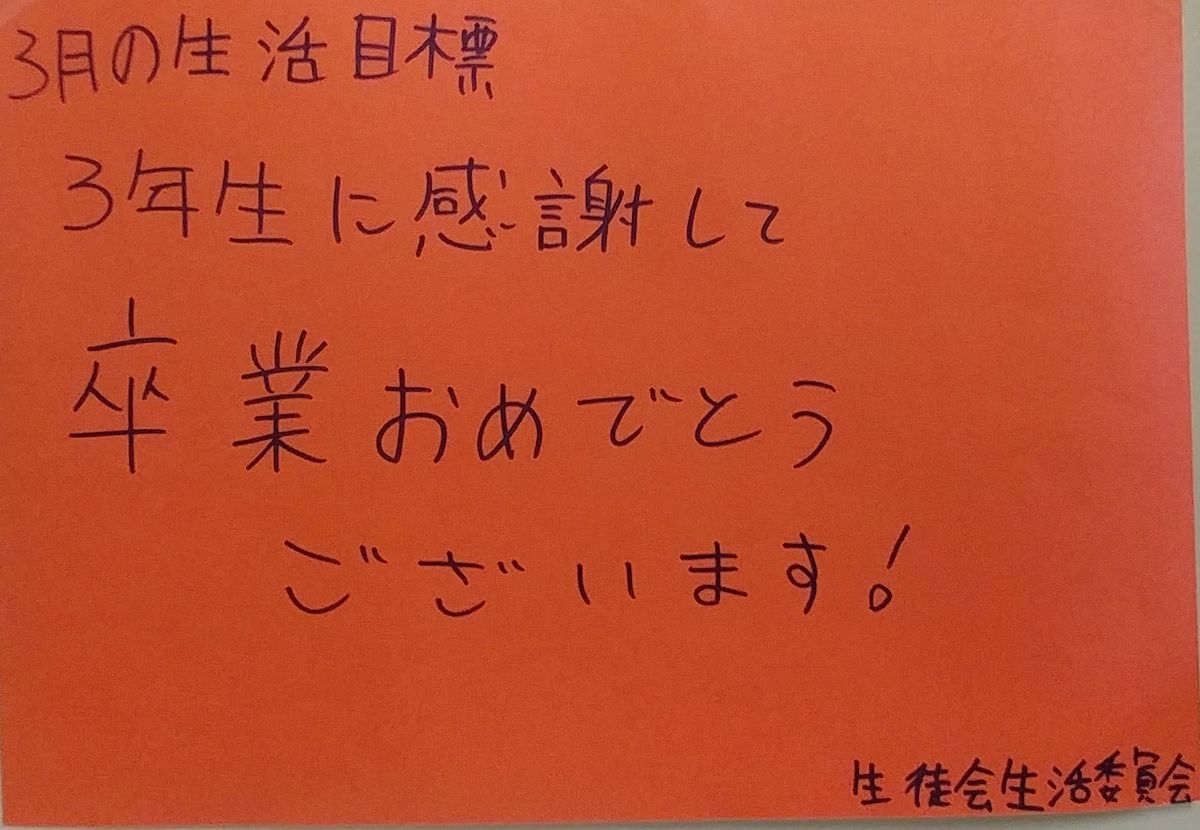 3月の生活目標
3年生に感謝して
卒業おめでとう
ございます!
生徒会生活委員会